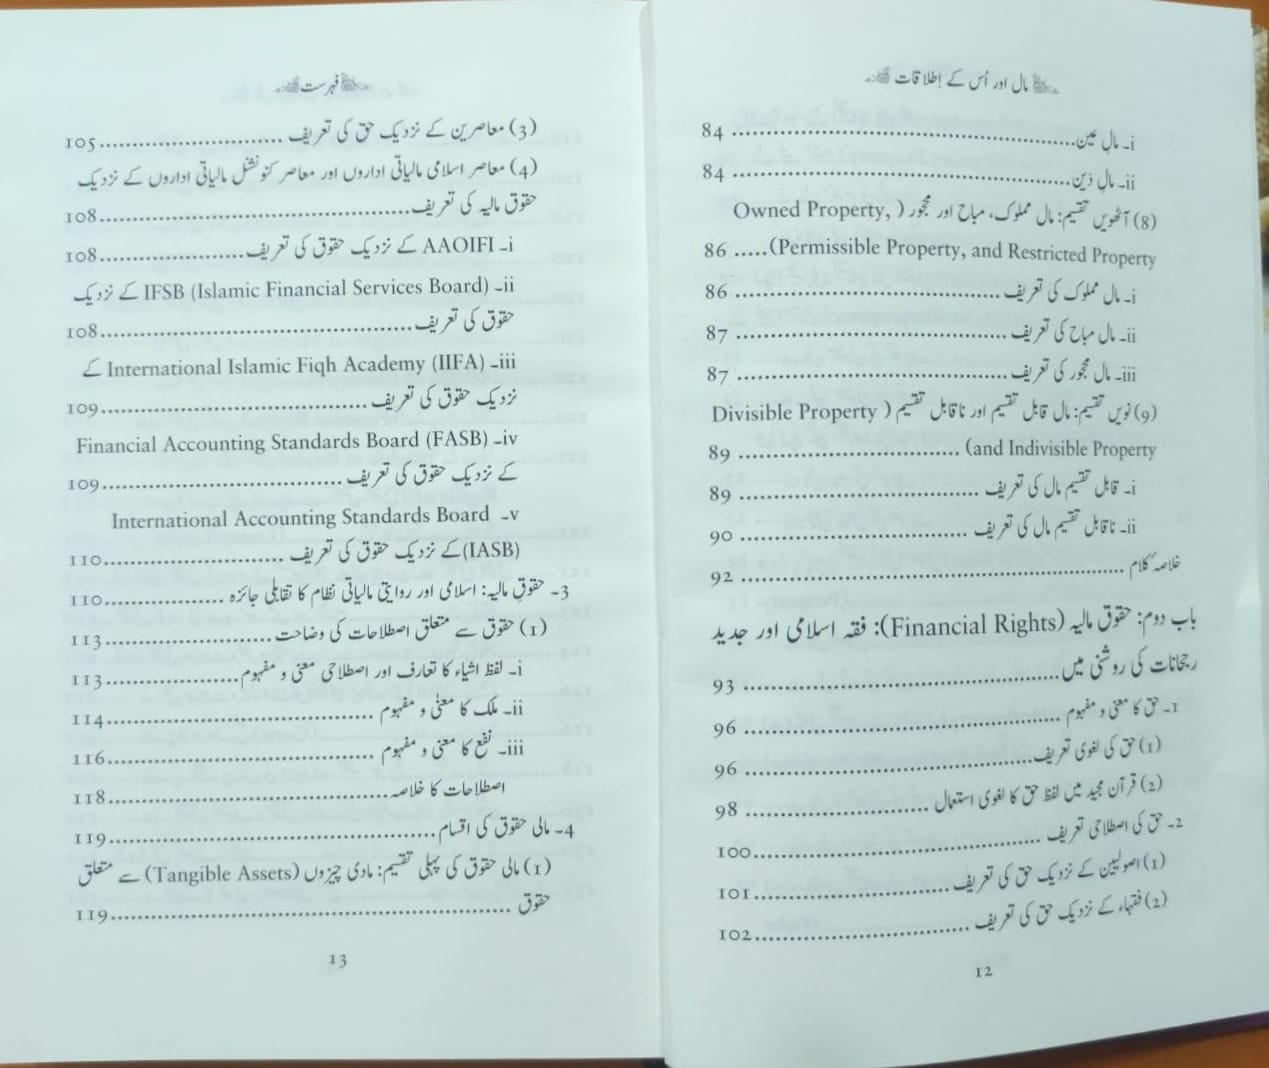 مال اور اُس کے اِطلاقات
i۔ مالِ عین ........ 84
ii۔ مالِ دَین ........ 84
(8) آٹھویں تقسیم: مال مملوک، مباح اور مجور ( Owned Property,
Permissible Property, and Restricted Property) ..... 86
i۔ مال مملوک کی تعریف ........ 86
ii۔ مال مباح کی تعریف ........ 87
iii۔ مال مجور کی تعریف ........ 87
(9) نویں تقسیم: مال قابل تقسیم اور ناقابل تقسیم ( Divisible Property
and Indivisible Property) ........ 89
i۔ قابل تقسیم مال کی تعریف ........ 89
ii۔ ناقابل تقسیم مال کی تعریف ........ 90
خلاصہ کلام ........ 92
باب دوم: حقوق مالیہ (Financial Rights): فقہ اسلامی اور جدید
رجحانات کی روشنی میں ........ 93
1۔ حق کا معنی و مفہوم ........ 96
(1) حق کی لغوی تعریف ........ 96
(2) قرآن مجید میں لفظ حق کا لغوی استعمال ........ 98
2۔ حق کی اصطلاحی تعریف ........ 100
(1) اصولیین کے نزدیک حق کی تعریف ........ 101
(2) فقہاء کے نزدیک حق کی تعریف ........ 102
12
فہرست
(3) معاصرین کے نزدیک حق کی تعریف ........ 105
(4) معاصر اسلامی مالیاتی اداروں اور معاصر کنونشنل مالیاتی اداروں کے نزدیک
حقوق مالیہ کی تعریف ........ 108
i۔ AAOIFI کے نزدیک حقوق کی تعریف ........ 108
ii۔ IFSB (Islamic Financial Services Board) کے نزدیک
حقوق کی تعریف ........ 108
iii۔ International Islamic Fiqh Academy (IIFA) کے
نزدیک حقوق کی تعریف ........ 109
iv۔ Financial Accounting Standards Board (FASB)
کے نزدیک حقوق کی تعریف ........ 109
v۔ International Accounting Standards Board
(IASB) کے نزدیک حقوق کی تعریف ........ 110
3۔ حقوقِ مالیہ: اسلامی اور روایتی مالیاتی نظام کا تقابلی جائزہ ........ 110
(1) حقوق سے متعلق اصطلاحات کی وضاحت ........ 113
i۔ لفظ اشیاء کا تعارف اور اصطلاحی معنی و مفہوم ........ 113
ii۔ ملک کا معنی و مفہوم ........ 114
iii۔ نفع کا معنی و مفہوم ........ 116
اصطلاحات کا خلاصہ ........ 118
4۔ مالی حقوق کی اقسام ........ 119
(1) مالی حقوق کی پہلی تقسیم: مادی چیزوں (Tangible Assets) سے متعلق
حقوق ........ 119
13